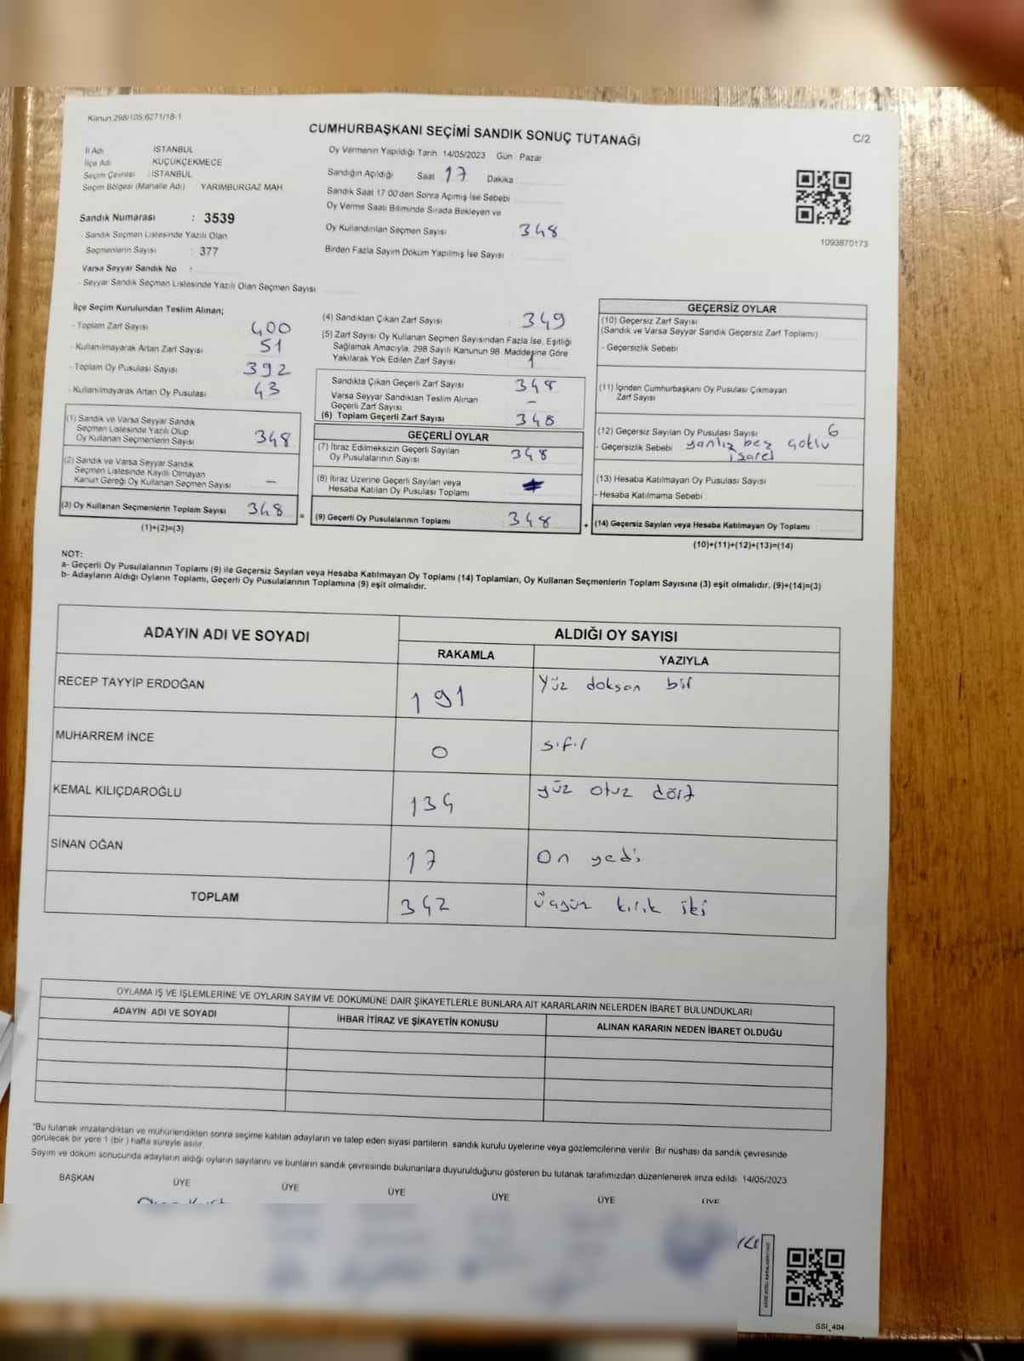 Kanun 298/105,6271/18-1
CUMHURBAŞKANI SEÇİMİ SANDIK SONUÇ TUTANAĞI
C/2
İl Adı İSTANBUL
İlçe Adı KÜÇÜKÇEKMECE
Seçim Çevresi : İSTANBUL
Seçim Bölgesi (Mahalle Adı) YARIMBURGAZ MAH
Sandık Numarası : 3539
- Sandık Seçmen Listesinde Yazılı Olan
Seçmenlerin Sayısı : 377
Varsa Seyyar Sandık No :
- Seyyar Sandık Seçmen Listesinde Yazılı Olan Seçmen Sayısı
Oy Vermenin Yapıldığı Tarih 14/05/2023 Gün Pazar
Sandığın Açıldığı Saat 17 Dakika
Sandık Saat 17 00'den Sonra Açılmış İse Sebebi
Oy Verme Saati Bitiminde Sırada Bekleyen ve
Oy Kullandırılan Seçmen Sayısı 348
Birden Fazla Sayım Döküm Yapılmış İse Sayısı
1093870173
İlçe Seçim Kurulundan Teslim Alınan;
- Toplam Zarf Sayısı 400
- Kullanılmayarak Artan Zarf Sayısı 51
- Toplam Oy Pusulası Sayısı 392
- Kullanılmayarak Artan Oy Pusulası 43
(1) Sandık ve Varsa Seyyar Sandık
Seçmen Listesinde Yazılı Olup
Oy Kullanan Seçmenlerin Sayısı 348
(2) Sandık ve Varsa Seyyar Sandık
Seçmen Listesinde Kayıtlı Olmayan
Kanun Gereği Oy Kullanan Seçmen Sayısı -
(3) Oy Kullanan Seçmenlerin Toplam Sayısı 348 =
(1)+(2)=(3)
(4) Sandıktan Çıkan Zarf Sayısı 349
(5) Zarf Sayısı Oy Kullanan Seçmen Sayısından Fazla İse, Eşitliği
Sağlamak Amacıyla, 298 Sayılı Kanunun 98. Maddesine Göre
Yakılarak Yok Edilen Zarf Sayısı 1
Sandıkta Çıkan Geçerli Zarf Sayısı 348
Varsa Seyyar Sandıktan Teslim Alınan
Geçerli Zarf Sayısı -
(6) Toplam Geçerli Zarf Sayısı 348
GEÇERLİ OYLAR
(7) İtiraz Edilmeksizin Geçerli Sayılan
Oy Pusulalarının Sayısı 348
(8) İtiraz Üzerine Geçerli Sayılan veya
Hesaba Katılan Oy Pusulası Toplamı
(9) Geçerli Oy Pusulalarının Toplamı 348 +
GEÇERSİZ OYLAR
(10) Geçersiz Zarf Sayısı
(Sandık ve Varsa Seyyar Sandık Geçersiz Zarf Toplamı)
- Geçersizlik Sebebi
(11) İçinden Cumhurbaşkanı Oy Pusulası Çıkmayan
Zarf Sayısı
(12) Geçersiz Sayılan Oy Pusulası Sayısı 6
- Geçersizlik Sebebi
(13) Hesaba Katılmayan Oy Pusulası Sayısı
- Hesaba Katılmama Sebebi
(14) Geçersiz Sayılan veya Hesaba Katılmayan Oy Toplamı
(10)+(11)+(12)+(13)=(14)
NOT:
a- Geçerli Oy Pusulalarının Toplamı (9) ile Geçersiz Sayılan veya Hesaba Katılmayan Oy Toplamı (14) Toplamları, Oy Kullanan Seçmenlerin Toplam Sayısına (3) eşit olmalıdır. (9)+(14)=(3)
b- Adayların Aldığı Oyların Toplamı, Geçerli Oy Pusulalarının Toplamına (9) eşit olmalıdır.
ADAYIN ADI VE SOYADI ALDIĞI OY SAYISI
RAKAMLA YAZIYLA
RECEP TAYYİP ERDOĞAN 191 Yüz doksan bir
MUHARREM İNCE 0 sıfır
KEMAL KILIÇDAROĞLU 134 yüz otuz dört
SİNAN OĞAN 17 On yedi
TOPLAM 342 üçyüz kırk iki
OYLAMA İŞ VE İŞLEMLERİNE VE OYLARIN SAYIM VE DÖKÜMÜNE DAİR ŞİKAYETLERLE BUNLARA AİT KARARLARIN NELERDEN İBARET BULUNDUKLARI
ADAYIN ADI VE SOYADI İHBAR İTİRAZ VE ŞİKAYETİN KONUSU ALINAN KARARIN NEDEN İBARET OLDUĞU
"Bu tutanak imzalandıktan ve mühürlendikten sonra seçime katılan adayların ve talep eden siyasi partilerin sandık kurulu üyelerine veya gözlemcilerine verilir. Bir nüshası da sandık çevresinde
görülecek bir yere 1 (bir) hafta süreyle asılır.
Sayım ve döküm sonucunda adayların aldığı oyların sayılarını ve bunların sandık çevresinde bulunanlara duyurulduğunu gösteren bu tutanak tarafımızdan düzenlenerek imza edildi. 14/05/2023
BAŞKAN ÜYE ÜYE ÜYE ÜYE ÜYE ÜYE
SSI_404